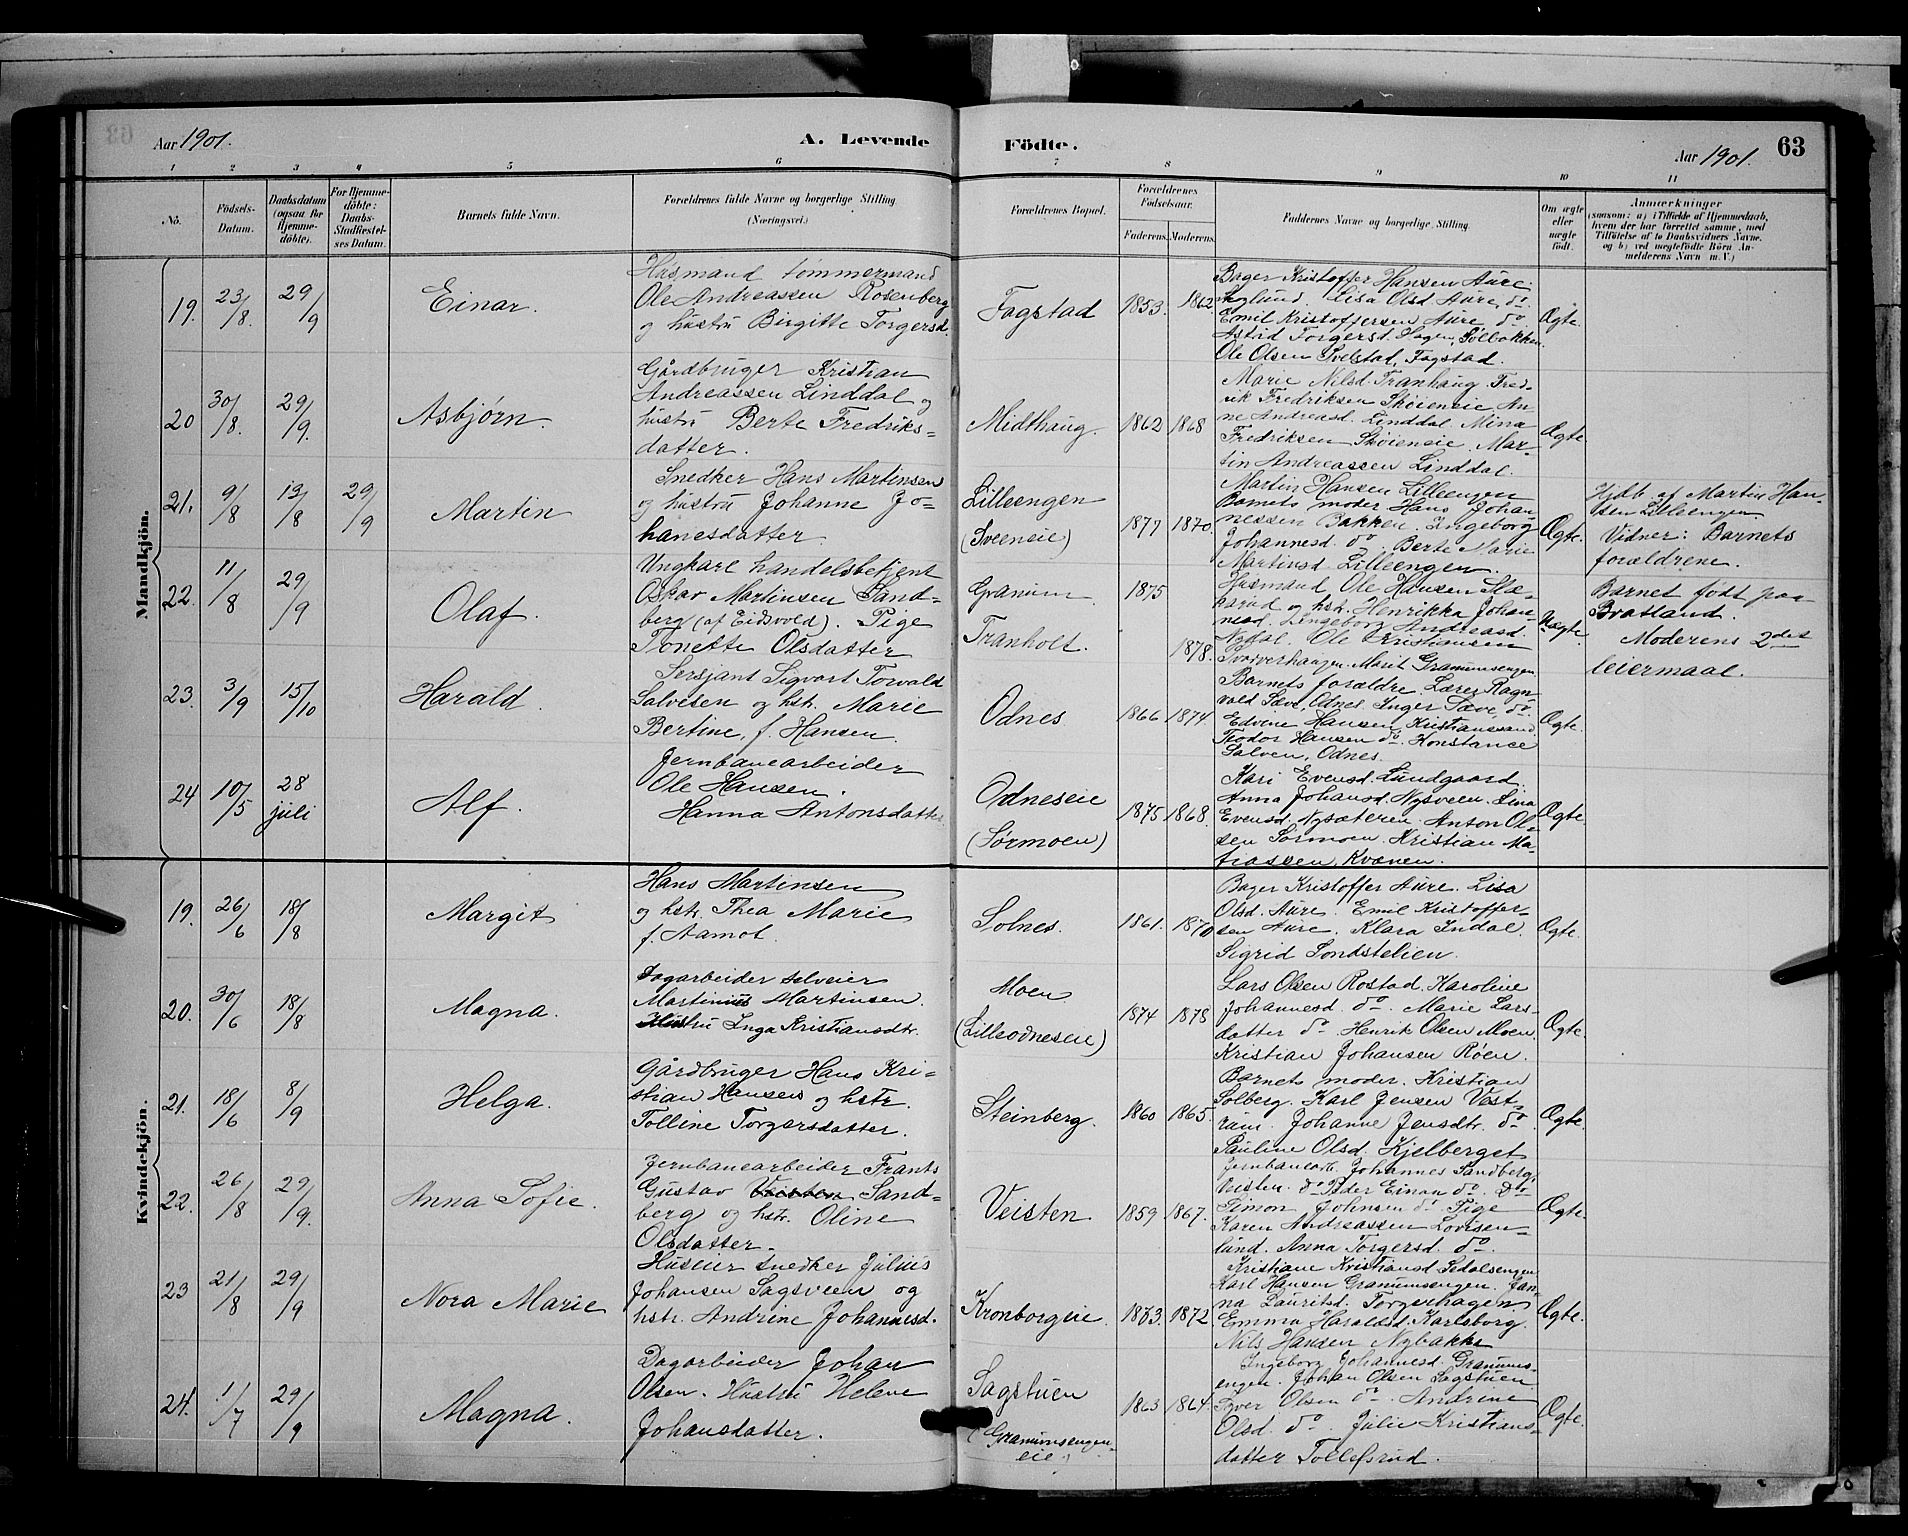 Aar 1901.
A. Levende Födte.
Aar 1901.
63
1 2 3 4 5 6 7 8 9 10 11
No.
Födsels-
Datum.
Daabsdatum
(ogsaa for
Hjemme-
döbte).
For Hjemme-
döbte:
Daabs-
Stadfæstel-
ses Datum.
Barnets fulde Navn.
Forældrenes fulde Navne og borgerlige Stilling
(Næringsvei.)
Forældrenes Bopæl.
Forældrenes
Födselsaar.
Faderens. Moderens.
Faddernes Navne og borgerlige Stilling.
Om ægte
eller
uægte
födt.
Anmærkninger
(saasom: a) i Tilfælde af Hjemmedaab,
hvem der har forrettet samme, med
Tilföielse af to Daabsvidners Navne,
og b) ved uegtefödte Börn An-
melderens Navn m. V.)
Mandkjön.
19. 23/8. 29/9
Einar.
Husmand tømmermand
Ole Andreassen Rosenberg
og hustru Birgitte Torgersd.
Fagstad
1853. 1862
Bager Kristoffer Hansen Aure
Lisa Olsd Aure, do
Emil Kristoffersen Aure do
Astrid Torgersd. Hagen, Solbakken
Ole Olsen Svelstad, Fagstad.
Ægte.
20 30/8. 29/9.
Asbjørn.
Gårdbruger Kristian
Andreassen Linddal og
hustru Berte Fredriks-
datter.
Midthaug.
1862 1868
Marie Nilsd. Tranhaug. Fred-
rik Fredriksen Skøieneie. An-
ne Andreasd. Linddal. Mina
Fredriksen Skøieneie. Mar-
tin Andreassen Linddal.
Ægte
21. 9/8 13/8 29/9
Martin
Snedker Hans Martinsen
og hustru Johanne Jo-
hanesdatter
Lilleengen
(Sveeneie)
1877 1870
Martin Hansen Lilleengen
Barnets moder Hans Johan-
nessen Bakken. Ingeborg
Johannesd. do Berte Marie
Martinsd Lilleengen.
Ægte.
Hjdb. af Martin Han-
sen Lilleengen.
Vidner: Barnets
forældrene.
22. 11/8 29/9
Olaf.
Ungkarl handelsbetjent
Oskar Martinsen Sand-
berg (af Eidsvold). Pige
Tonette Olsdatter
Granum
Tranholt.
1875
1878.
Husmand Ole Hansen Slæ-
karud og hstr. Henrikka Johan-
nesd. Ingeborg Andreasd.
Nydal. Ole Kristiansen
Marit Granumsengen
Uægte.
Barnet født paa
Bratland.
Moderens 2det
leiermaal.
23. 3/9 15/10
Harald
Sersjant Sigvart Torvald
Salvesen og hstr. Marie
Bertine, f. Hansen.
Odnes
1866 1874.
Barnets forældre. Lærer Ragn-
vald Sæve, Odnes. Inger Sæve, do
Edvine Hansen Kristianssand
Teodor Hansen do. Konstance
Salven, Odnes.
Ægte.
24 10/5 28 juli
Alf.
Jernbanearbeider
Ole Hansen.
Hanna Antonsdatter
Odneseie
(Sørmoen)
1875 1868.
Kari Evensd. Lundgaard.
Anna Johansd. Nysveen. Lina
Evensd. Nysæteren. Anton Ol-
sen Sørmoen. Kristian Ma-
tiassen, Kvænen.
Ægte.
Kvindekjön.
19. 26/6 18/8
Margit
Hans Martinsen
og hstr. Thea Marie
f. Aamot.
Solnes.
1861. 1870
Bager Kristoffer Aure. Lisa
Olsd. Aure. Emil Kristoffer-
sen Aure. Klara Indal.
Sigrid Sondstelien.
Ægte.
20. 30/6 18/8
Magna.
Dagarbeider selveier
Martinius Martinsen.
Hustru Inga Kristiansdtr.
Moen
(Lilleodneseie)
1874 1878
Lars Olsen Rostad. Karoline
Johannesd. do. Marie Lars-
datter do Henrik Olsen Moen.
Kristian Johansen Røen.
Ægte.
21. 18/6 8/9
Helga.
Gårdbruger Hans Kri-
stian Hansen og hstr.
Tolline Torgersdatter.
Steinberg.
1860 1865.
Barnets moder. Kristian
Solberg. Karl Jensen Vest-
rum. Johanne Jensdtr. do
Pauline Olsd. Kjelberget
Ægte.
22. 26/8 29/9.
Anna Sofie.
Jernbanearbeider Frants
Gustav Veisten Sand-
berg og hstr. Oline
Olsdatter.
Veisten
1859 1867.
Jernbanearb. Johannes Sandberg,
Veisten. do Peder Einan do. Dtr
Simon Johnsen do Pige
Karen Andreassen Lovisen-
lund. Anna Torgersd. do.
Ægte.
23 21/8 29/9
Nora Marie
Huseier snedker Julius
Johansen Sagsveen og
hstr. Andrine Johannesd.
Kronborgeie.
1873. 1872.
Kristiane Kristiansd. Sedalsengen
Karl Hansen Granumsengen. Jan-
na Lauritsd. Torgerhagen
Emma Haraldsd. Karlsborg.
Nils Hansen Nybakke
Ægte.
24. 1/7 29/9
Magna.
Dagarbeider Johan
Olsen. Hustru Helene
Johansdatter.
Sagstuen
(Granumsengen-
eie.)
1863 1864.
Ingeborg Johannesd. Granums-
engen. Johan Olsen Sagstuen.
Iver Olsen do. Andrine
Olsd. do. Julie Kristians-
datter Tollefsrud.
Ægte.